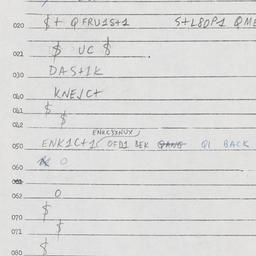 020 $+ QFRU1S+1 S+L80P1 QME
021 $ UC $
030 DAS+1K
040 KNEJC+
041 $
042 $
ENKC3XNUX
050 ENK1C+1 OFD1 BEK QANG Q1 BACK
060 O
061
062 O
070 $
071 $
080 $